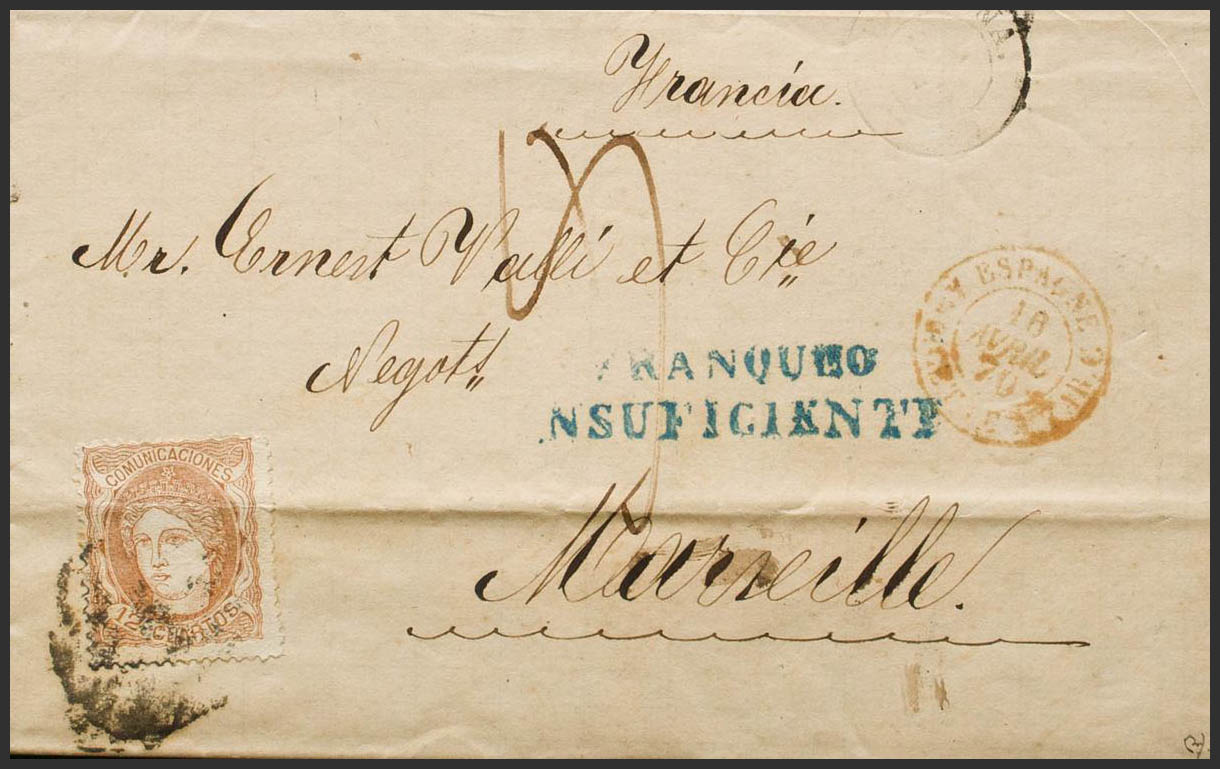 Francia.
Mr. Ernest Valli et Cie
Negots
FRANQUEO
NSUFICIENTE
ESPAGNE
18
AVRIL
70
COMUNICACIONES
12 CENTIMOS
Marseille.